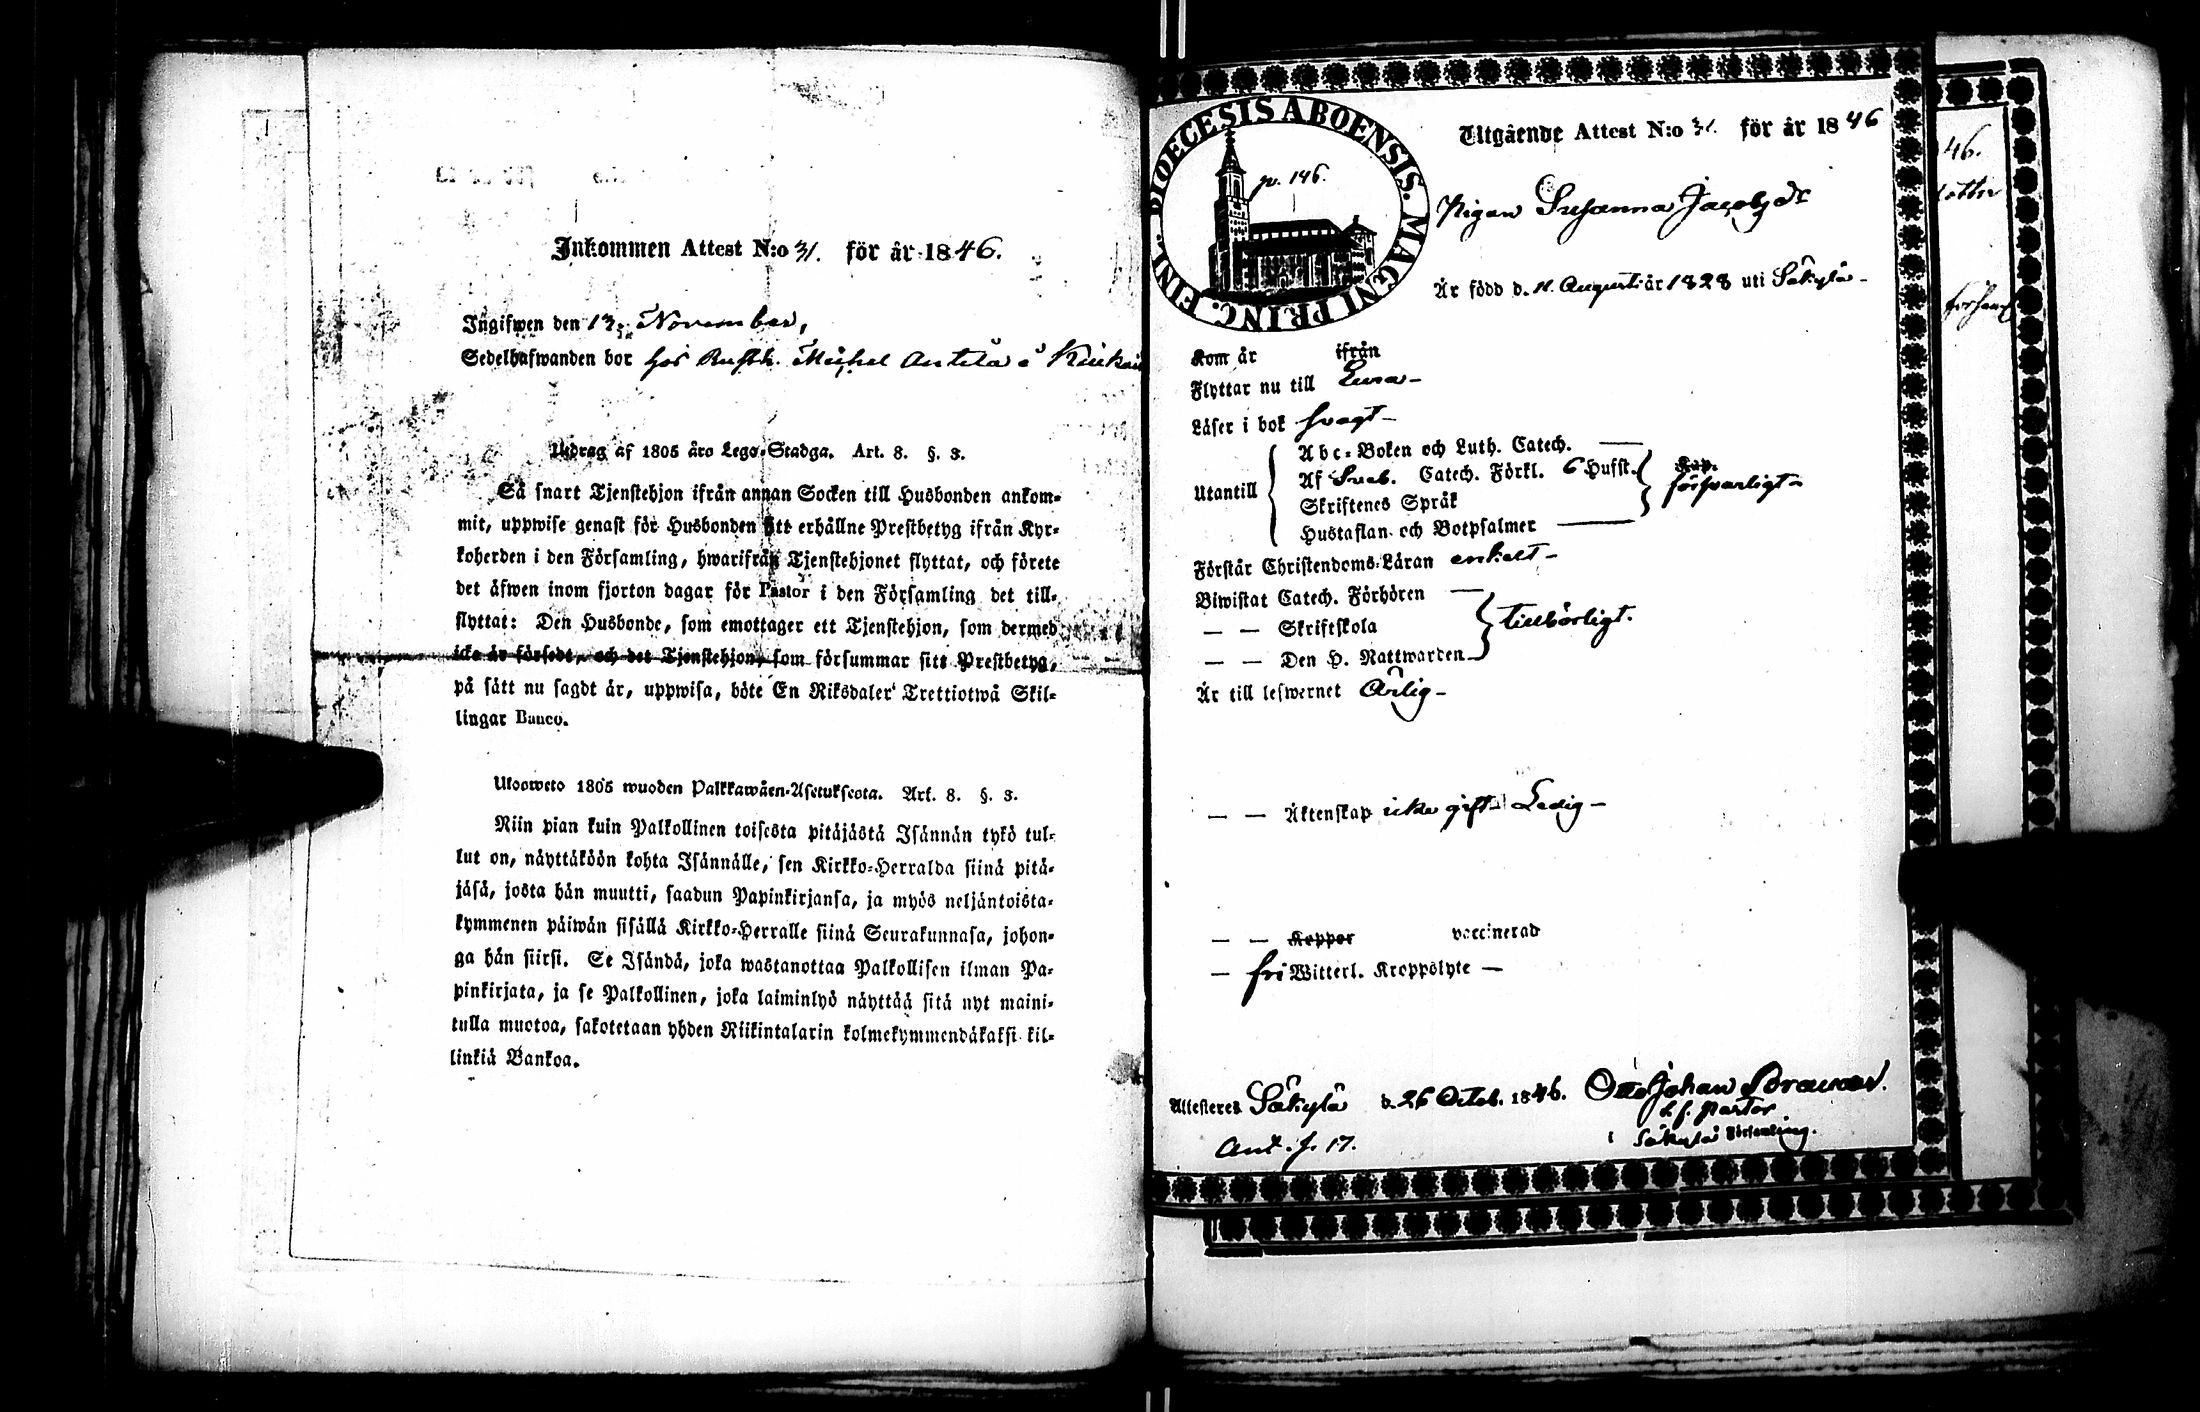 Inkommen Attest N:o 31. för år 1846.
Ingifwen den 13. November,
Sedelhafwanden bor hos Rusth. Michel Anttila i
Utdrag af 1805 års Lego-Stadga. Art. 8. §. 3.
Så snart Tjenstehjon ifrån annan Socken till Husbonden ankom-
mit, uppwise genast för Husbonden sitt erhållne Prestbetyg ifrån Kyr-
koherden i den Församling, hwarifrån Tjenstehjonet flyttat, och förete
det äfwen inom fjorton dagar för Pastor i den Församling det till-
flyttat: Den Husbonde, som emottager ett Tjenstehjon, som dermed
icke är försedt, och det Tjenstehjon, som försummar sitt Prestbetyg,
på sätt nu sagdt är, uppwisa, böte En Riksdaler Trettiotwå Skil-
lingar Banco.
Uloosweto 1805 wuoden Palkkawäen-Asetuksesta. Art. 8. §. 3.
Niin pian kuin Palkollinen toisesta pitäjästä Isännän tykö tul-
lut on, näyttäköön kohta Isännälle, sen Kirkko-Herralda siinä pitä-
jäsä, josta hän muutti, saadun Papinkirjansa, ja myös neljäntoista-
kymmenen päiwän sisällä Kirkko-Herralle siinä Seurakunnasa, johon-
ga hän siirsi. Se Isändä, joka wastanottaa Palkollisen ilman Pa-
pinkirjata, ja se Palkollinen, joka laiminlyö näyttää sitä nyt maini-
tulla muotoa, sakotetaan yhden Riikintalarin kolmekymmendäkaksi kil-
linkiä Bankoa.
DIOECESIS ABOENSIS. MAGNI PRINC. FINL.
p. 146.
Utgående Attest N:o 31. för år 1846
Pigan Susanna Jacobsdr
Är född d. 11. Augusti år 1828 uti Säkylä
Kom år ifrån
Flyttar nu till Eura
Läser i bok svagt
Utantill
Abc-Boken och Luth. Catech.
Af Sveb. Catech. Förkl. 6 Hufst.
Skriftenes Språk
Hustaflan och Botpsalmer
försvarligt
Förstår Christendoms-Läran enkelt
Biwistat Catech. Förhören
— — Skriftskola
— — Den H. Nattwarden
tillbörligt.
Är till lefwernet Ärlig
— — Äktenskap icke gift Ledig
— — Koppor vaccinerad
— fri Witterl. Kroppslyte
Attesteres Säkylä d. 26 Octob. 1846. Otto Johan
t. f. Pastor
i Säkylä Församling.
Ant. f. 17.
46.